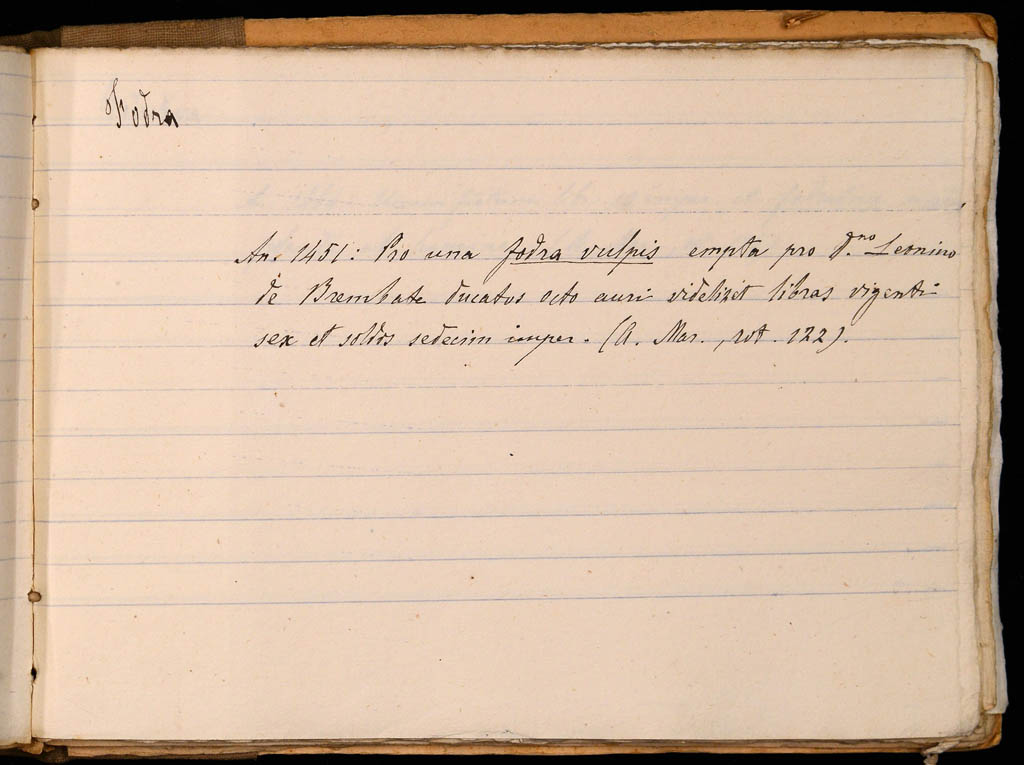 Fodra
An. 1451: Pro una fodra vulpis empta pro d.no Leonino
de Brembate ducatos octo auri videlizet libras vigenti
sex et soldos sedecim imper. (A. Mar., rot. 122).